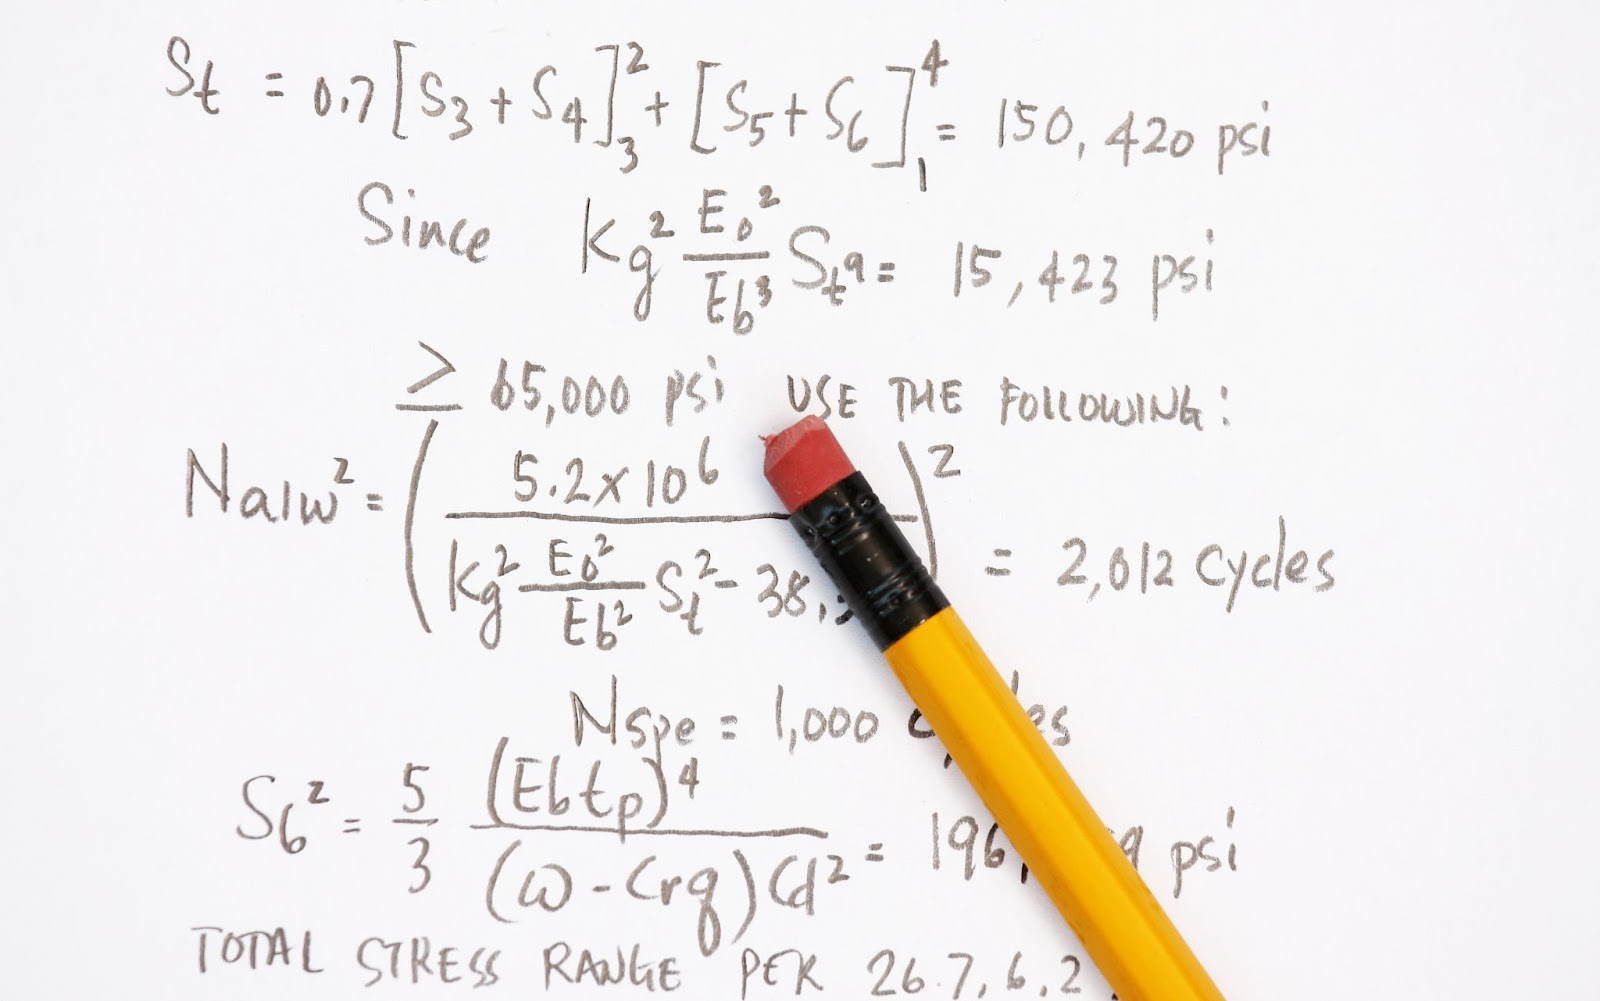 St = 0.7 [S3 + S4]²₃ + [S5 + S6]⁴₁ = 150,420 psi
Since Kg² Eo²/Eb³ St⁹ = 15,423 psi
≥ 65,000 psi USE THE FOLLOWING:
Nalw² = (5.2 x 10⁶ / Kg² Eo²/Eb² St² - 38,)² = 2,012 cycles
Nspe = 1,000
S6² = 5/3 (Ebtp)⁴ / (ω - Crq) Cd² = 196, psi
TOTAL STRESS RANGE PER 26.7.6.2